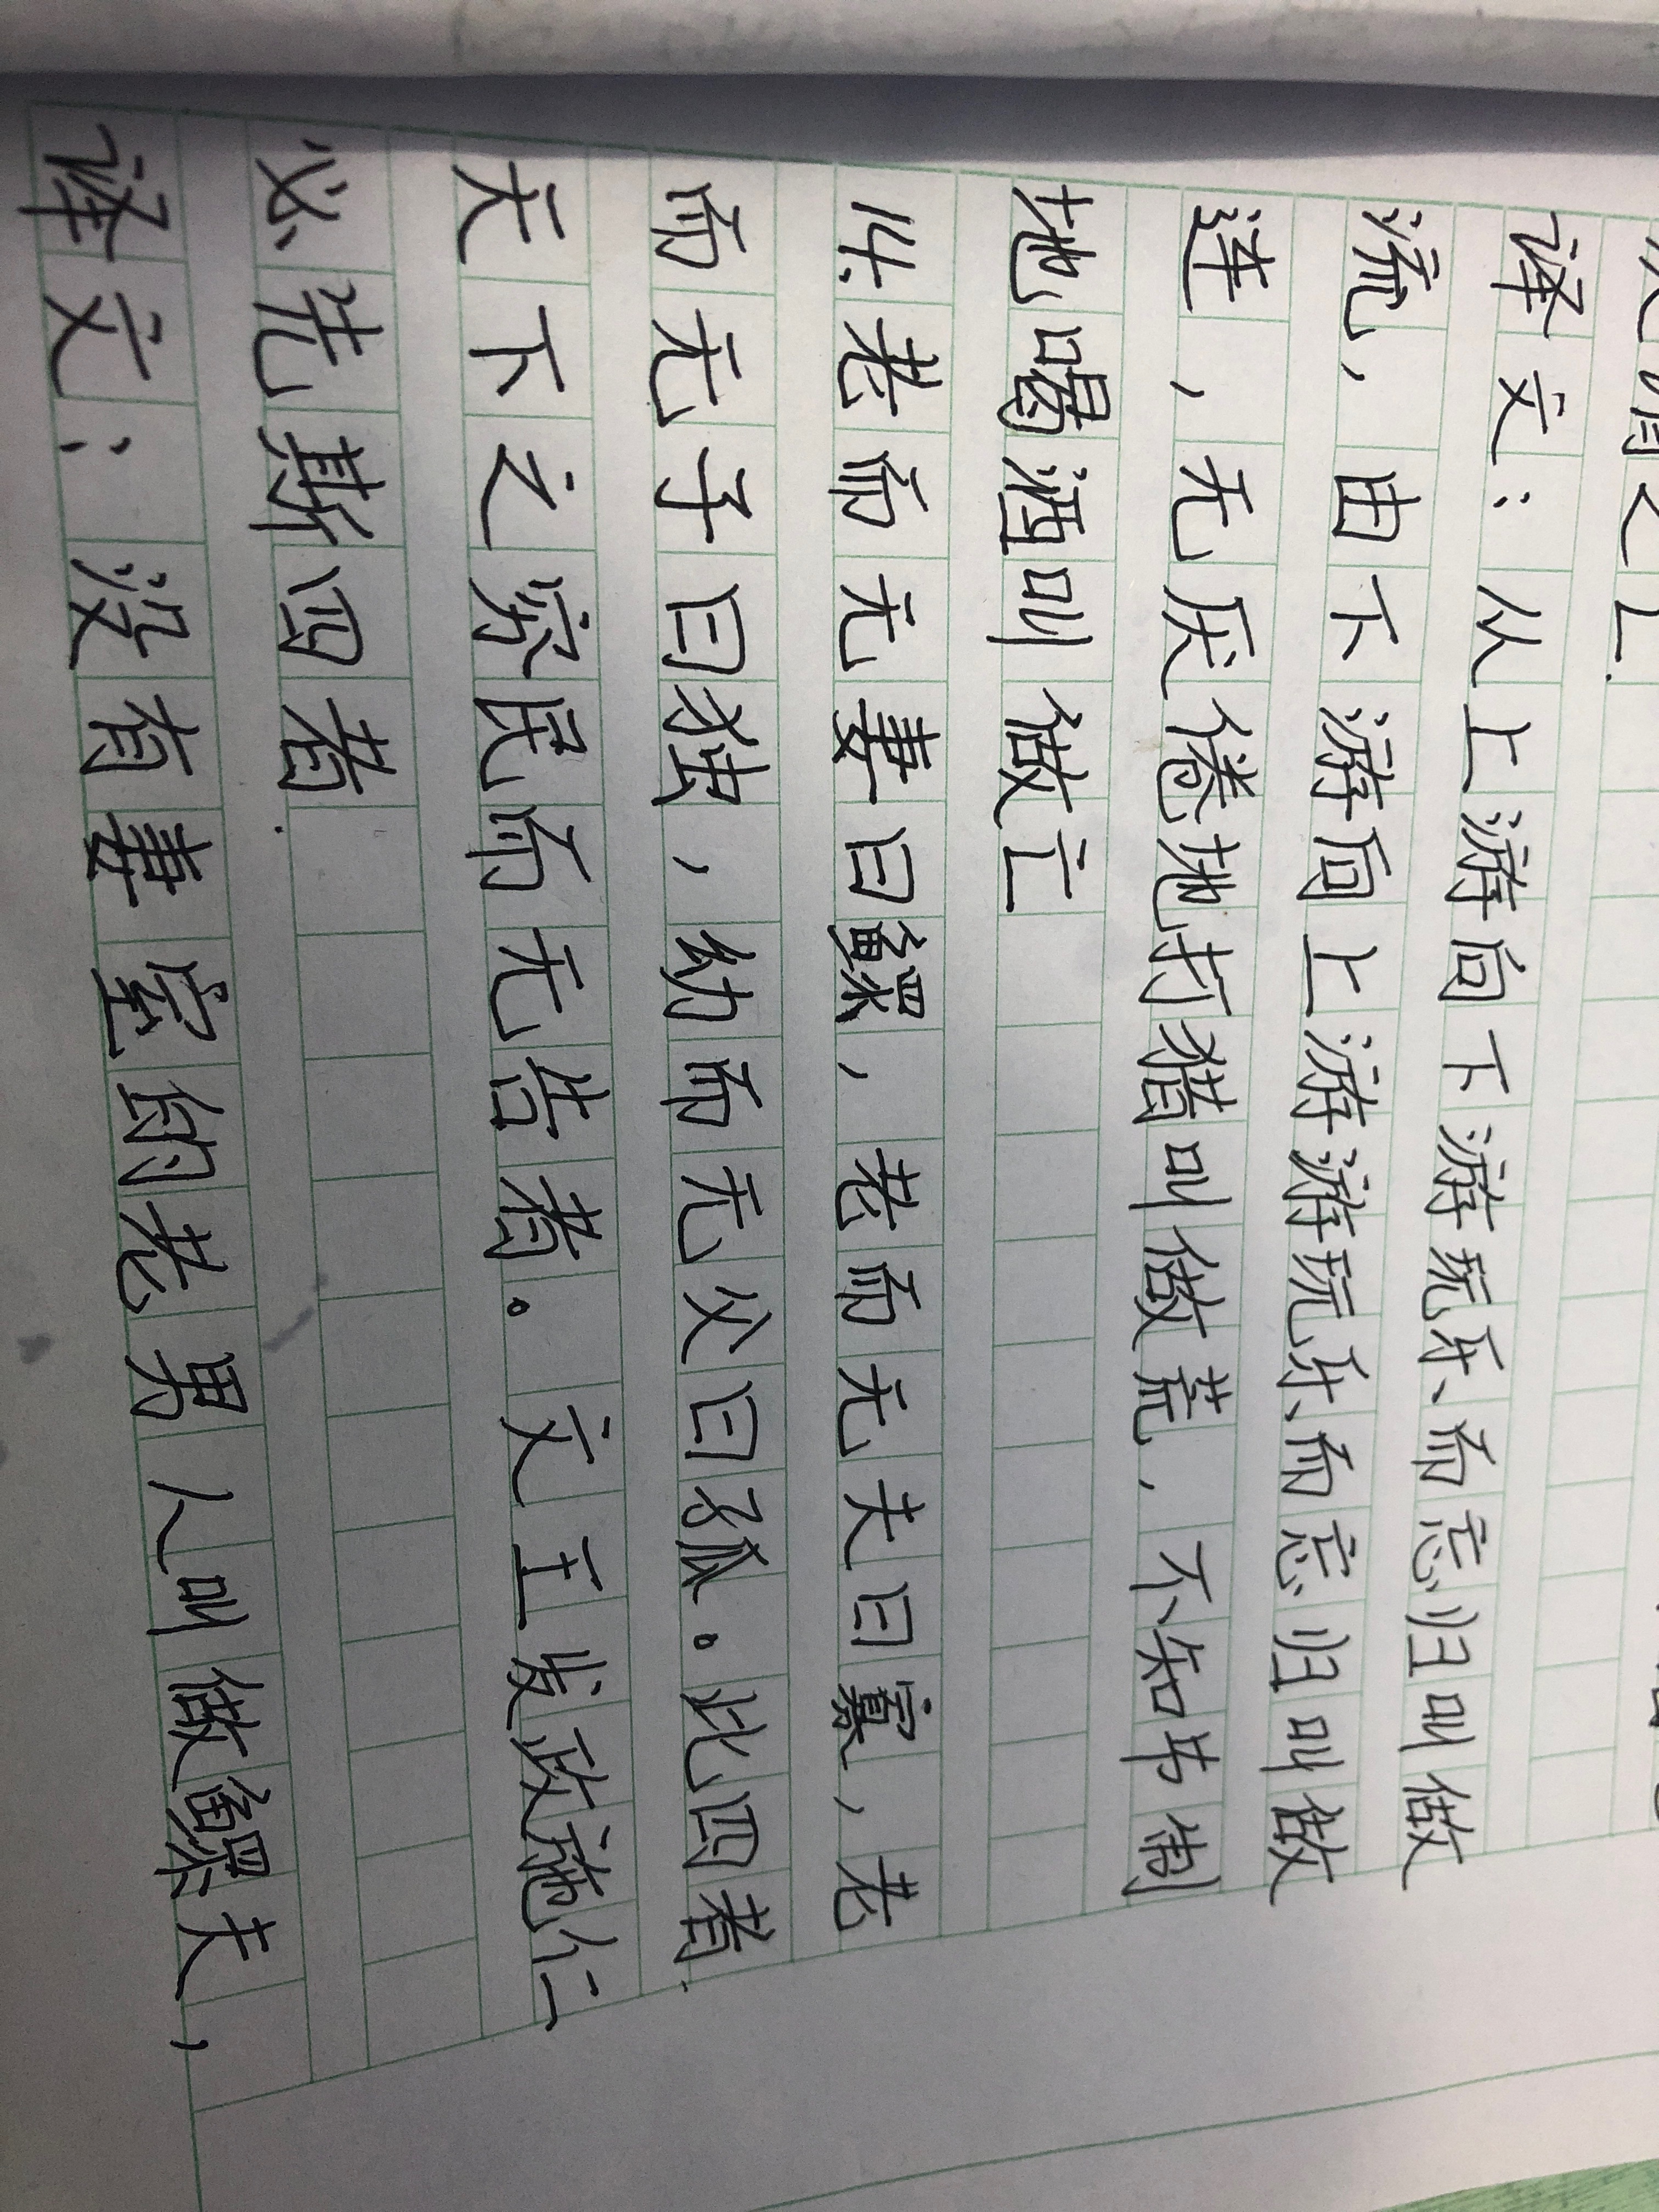 译文：从上游向下游玩乐而忘归叫做
流，由下游向上游游玩乐而忘归叫做
连，无厌倦地打猎叫做荒，不知节制
地喝酒叫做亡
4、老而无妻曰鳏，老而无夫曰寡，老
而无子曰独，幼而无父曰孤。此四者.
天下之穷民而无告者。文王发政施仁
必先斯四者.
译文：没有妻室的老男人叫做鳏夫，